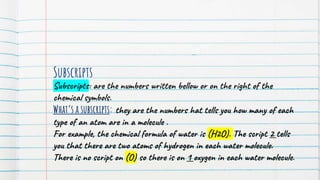 Subscripts
Subscripts: are the numbers written bellow or on the right of the
chemical symbols.
What's a subscripts: they are the numbers hat tells you how many of each
type of an atom are in a molecule .
For example, the chemical formula of water is (H2O). The script 2 tells
you that there are two atoms of hydrogen in each water molecule.
There is no script on (O) so there is on 1 oxygen in each water molecule.